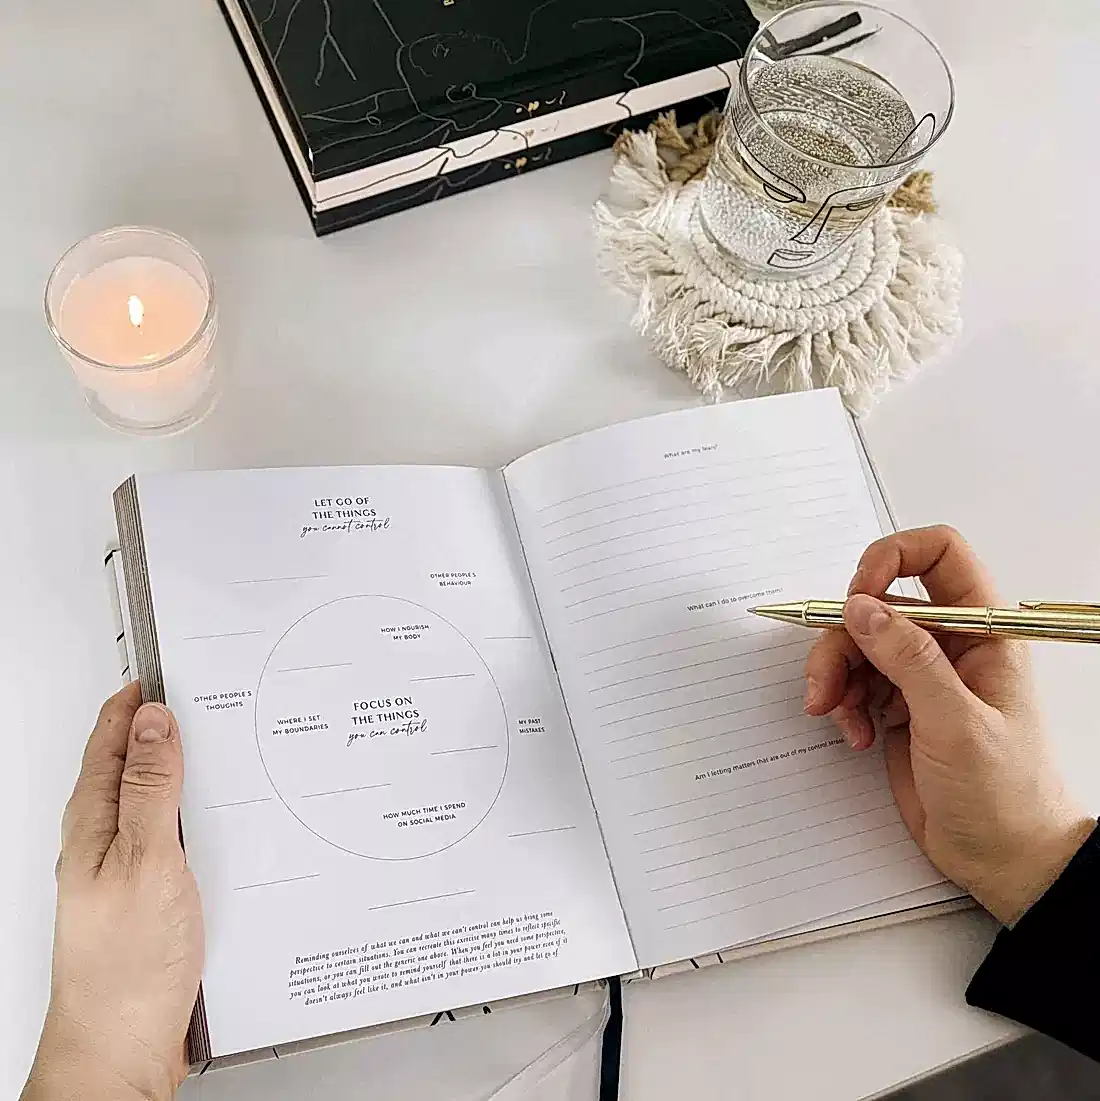 LET GO OF
THE THINGS
you cannot control
OTHER PEOPLE'S
BEHAVIOUR
HOW I NOURISH
MY BODY
OTHER PEOPLE'S
THOUGHTS
WHERE I SET
MY BOUNDARIES
FOCUS ON
THE THINGS
you can control
MY PAST
MISTAKES
HOW MUCH TIME I SPEND
ON SOCIAL MEDIA
Reminding ourselves of what we can and what we can't control can help us bring some
perspective to certain situations. You can recreate this exercise many times to reflect specific
situations, or you can fill out the generic one above. When you feel you need some perspective,
you can look at what you wrote to remind yourself that there is a lot in your power even if it
doesn't always feel like it, and what isn't in your power you should try and let go of
What are my fears?
What can I do to overcome them?
Am I letting matters that are out of my control